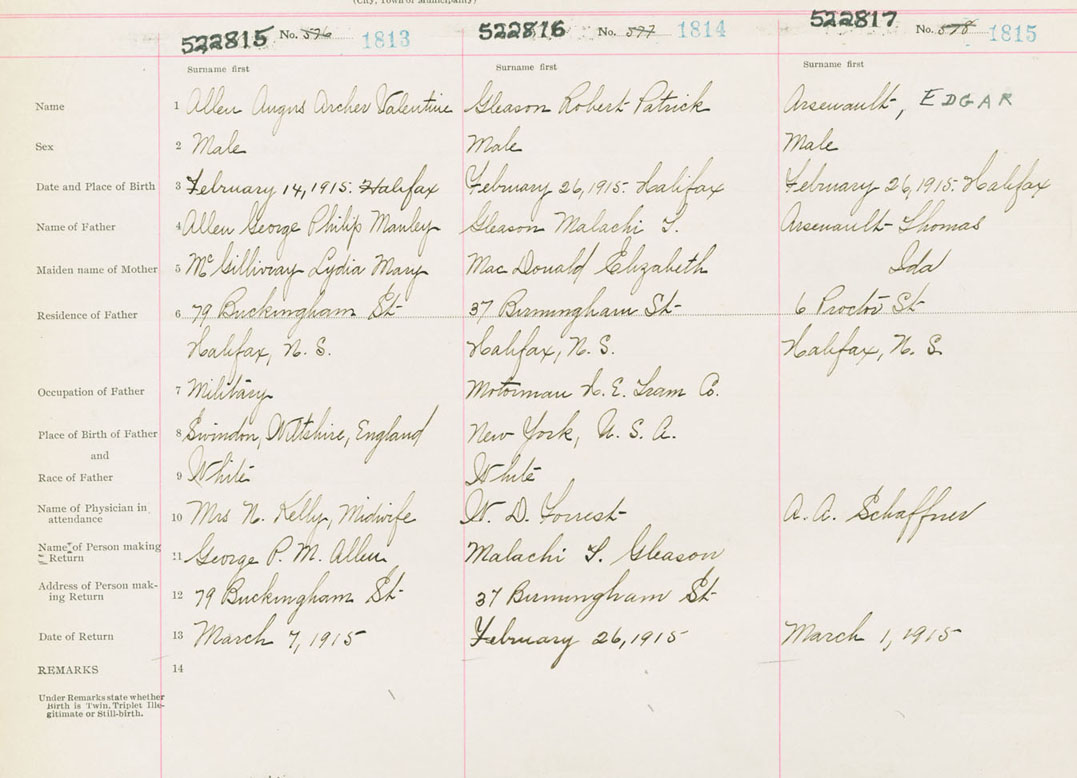 (City, Town or Municipality)
522815 No. 576 1813 522816 No. 577 1814 522817 No. 578 1815
Surname first Surname first Surname first
Name 1 Allen Angus Archer Valentine Gleason Robert Patrick Arsenault, EDGAR
Sex 2 Male Male Male
Date and Place of Birth 3 February 14, 1915. Halifax February 26, 1915. Halifax February 26, 1915. Halifax
Name of Father 4 Allen George Philip Manley Gleason Malachi T. Arsenault Thomas
Maiden name of Mother 5 McGillivray Lydia Mary MacDonald Elizabeth Ida
Residence of Father 6 79 Buckingham St 37 Birmingham St 6 Proctor St
Halifax, N. S. Halifax, N. S. Halifax, N. S.
Occupation of Father 7 Military Motorman N. E. Tram Co.
Place of Birth of Father 8 Swindon, Wiltshire, England New York, U. S. A.
and
Race of Father 9 White White
Name of Physician in
attendance 10 Mrs N. Kelly, Midwife W. D. Forrest A. A. Schaffner
Name of Person making
Return 11 George P. M. Allen Malachi T. Gleason
Address of Person mak-
ing Return 12 79 Buckingham St 37 Birmingham St
Date of Return 13 March 7, 1915 February 26, 1915 March 1, 1915
REMARKS 14
Under Remarks state whether
Birth is Twin, Triplet Ille-
gitimate or Still-birth.